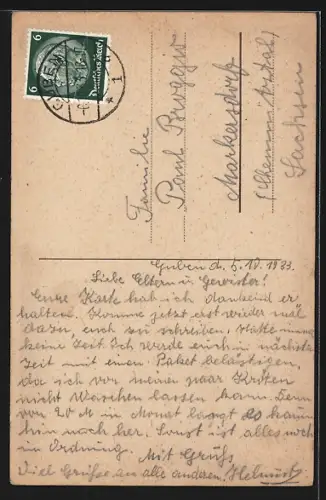 6 Deutsches Reich 6
GUBEN
1
Familie
Paul Burggig
Markersdorf
(Chemnitztal)
Sachsen
Guben d. 5.10.1933.
Liebe Eltern u. Gerwister!
Eure Karte hab ich dankend er
halten. Komme jetzt erst wieder mal
dazu, euch zu schreiben. Hatte immer
keine Zeit. Ich werde euch in nächster
Zeit mit einen Paket belästigen,
da ich vor meine paar Kröten
nicht Waschen lassen kann. Denn
von 20 M in Monat langt es kaum
hin noch her. Sonst ist alles noch
in Ordnung. Mit Gruß
Viel Grüße an alle anderen. Helmut